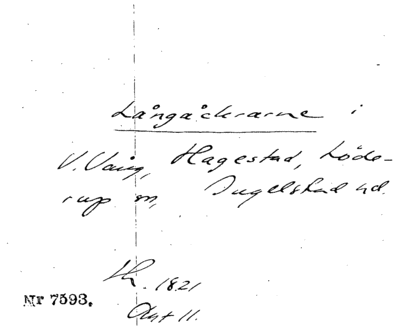 Långåckrarne i
V. Vång, Hagestad, Löde-
rup sn, Ingelstad hd.
Lh. 1821
Akt 11.
Nr 7593.